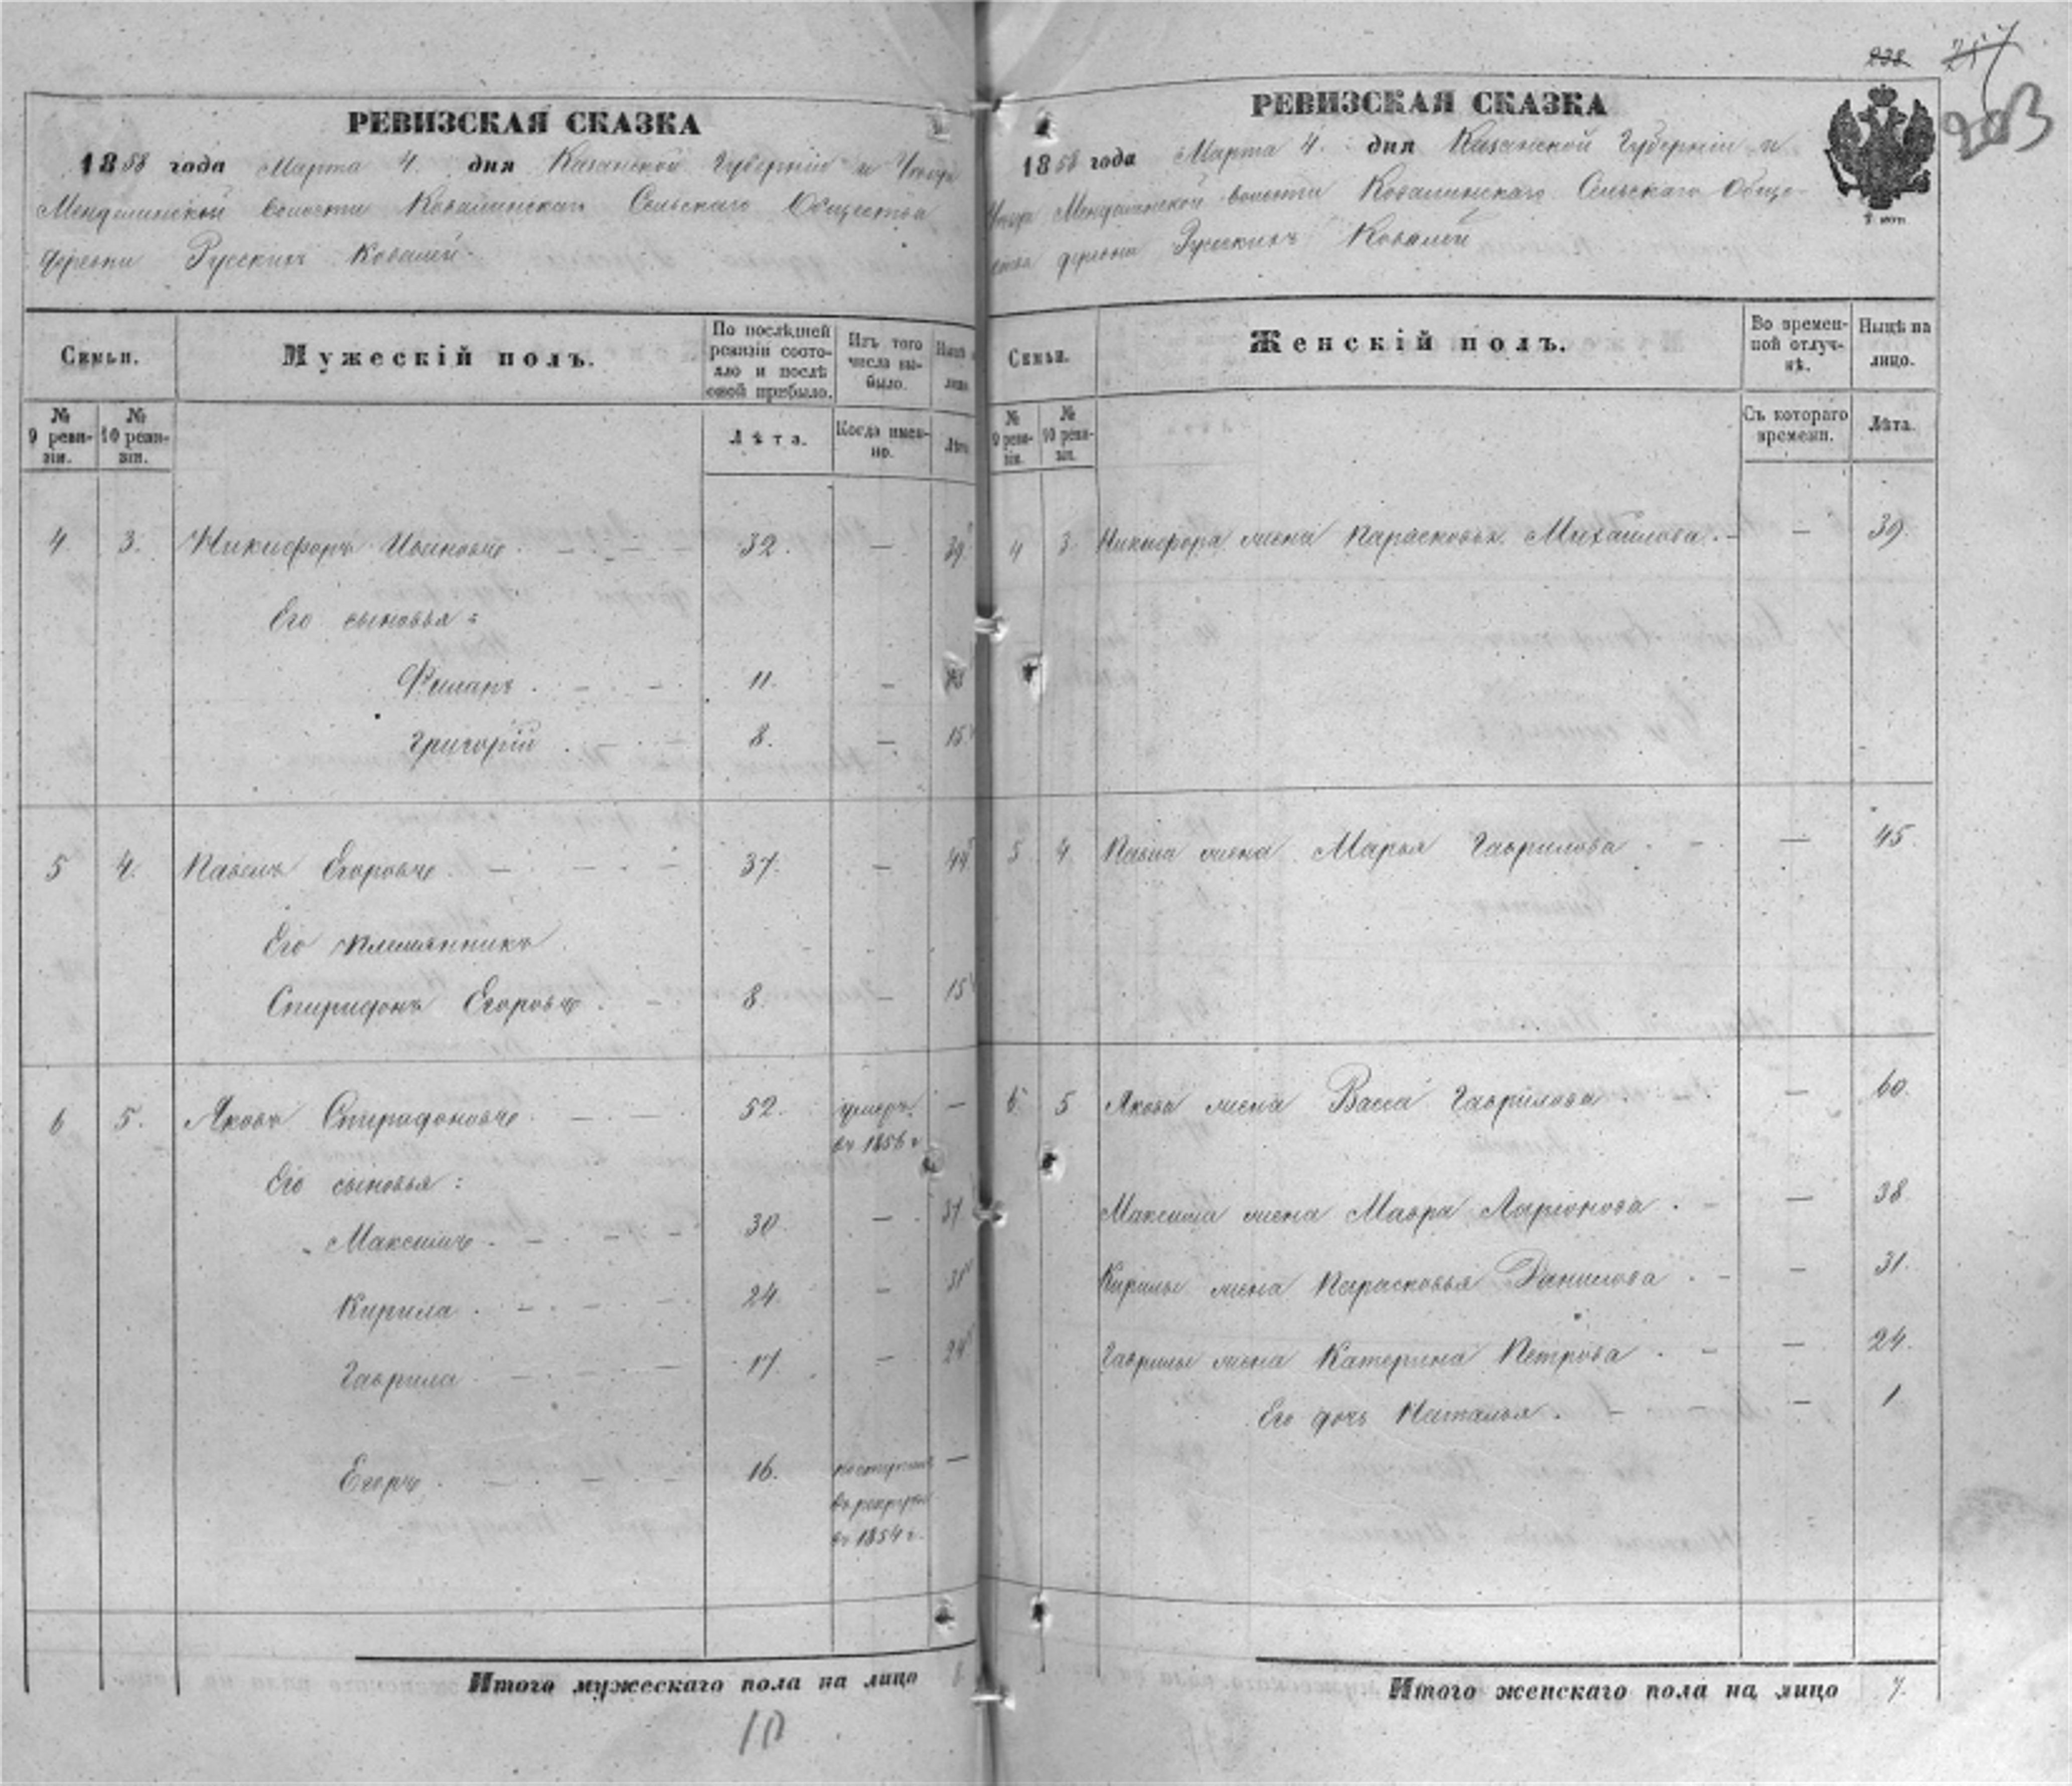 238 257
203
РЕВИЗСКАЯ СКАЗКА
1858 года Марта 4. дня Казанской Губерніи и Уезда
Менделинской волости Ковалинскаго Сельскаго Общества
деревни Русскихъ Ковалей
Семьи.
Мужескій полъ.
По послѣдней ревизіи состояло и послѣ оной прибыло.
Изъ того числа выбыло.
Нынѣ лицо.
№ 9 ревизіи.
№ 10 ревизіи.
Лѣта.
Когда именно.
Лѣта
4. 3. Никифоръ Ивановъ. 32. — 39
Его сыновья:
Филапъ. 11. — 18
Григорій 8. — 15
5 4. Павелъ Егоровъ. 37. — 44
Его племянникъ
Спиридонъ Егоровъ. 8. — 15
6 5. Яковъ Спиридоновъ 52. умеръ въ 1856 г —
Его сыновья:
Максимъ. 30. — 37
Кирила. 24. — 31
Гаврила 17. — 24
Егоръ. 16. поступилъ въ рекруты въ 1854 г. —
Итого мужескаго пола на лицо
10
РЕВИЗСКАЯ СКАЗКА
1858 года Марта 4. дня Казанской Губерніи и
Уезда Менделинской волости Ковалинскаго Сельскаго Обще-
ства деревни Русскихъ Ковалей
Семьи.
Женскій полъ.
Во временной отлучкѣ.
Нынѣ на лицо.
№ 9 ревизіи.
№ 10 ревизіи.
Съ котораго времени.
Лѣта.
4 3. Никифора жена Парасковья Михайлова. — 39.
5 4. Павла жена Марья Гаврилова — 45.
6. 5 Якова жена Васса Гаврилова — 60.
Максима жена Мавра Ларіонова. — 38
Кирилы жена Парасковья Данилова. — 31.
Гаврилы жена Катерина Петрова. — 24.
Его дочь Наталья. — 1
Итого женскаго пола на лицо 7.